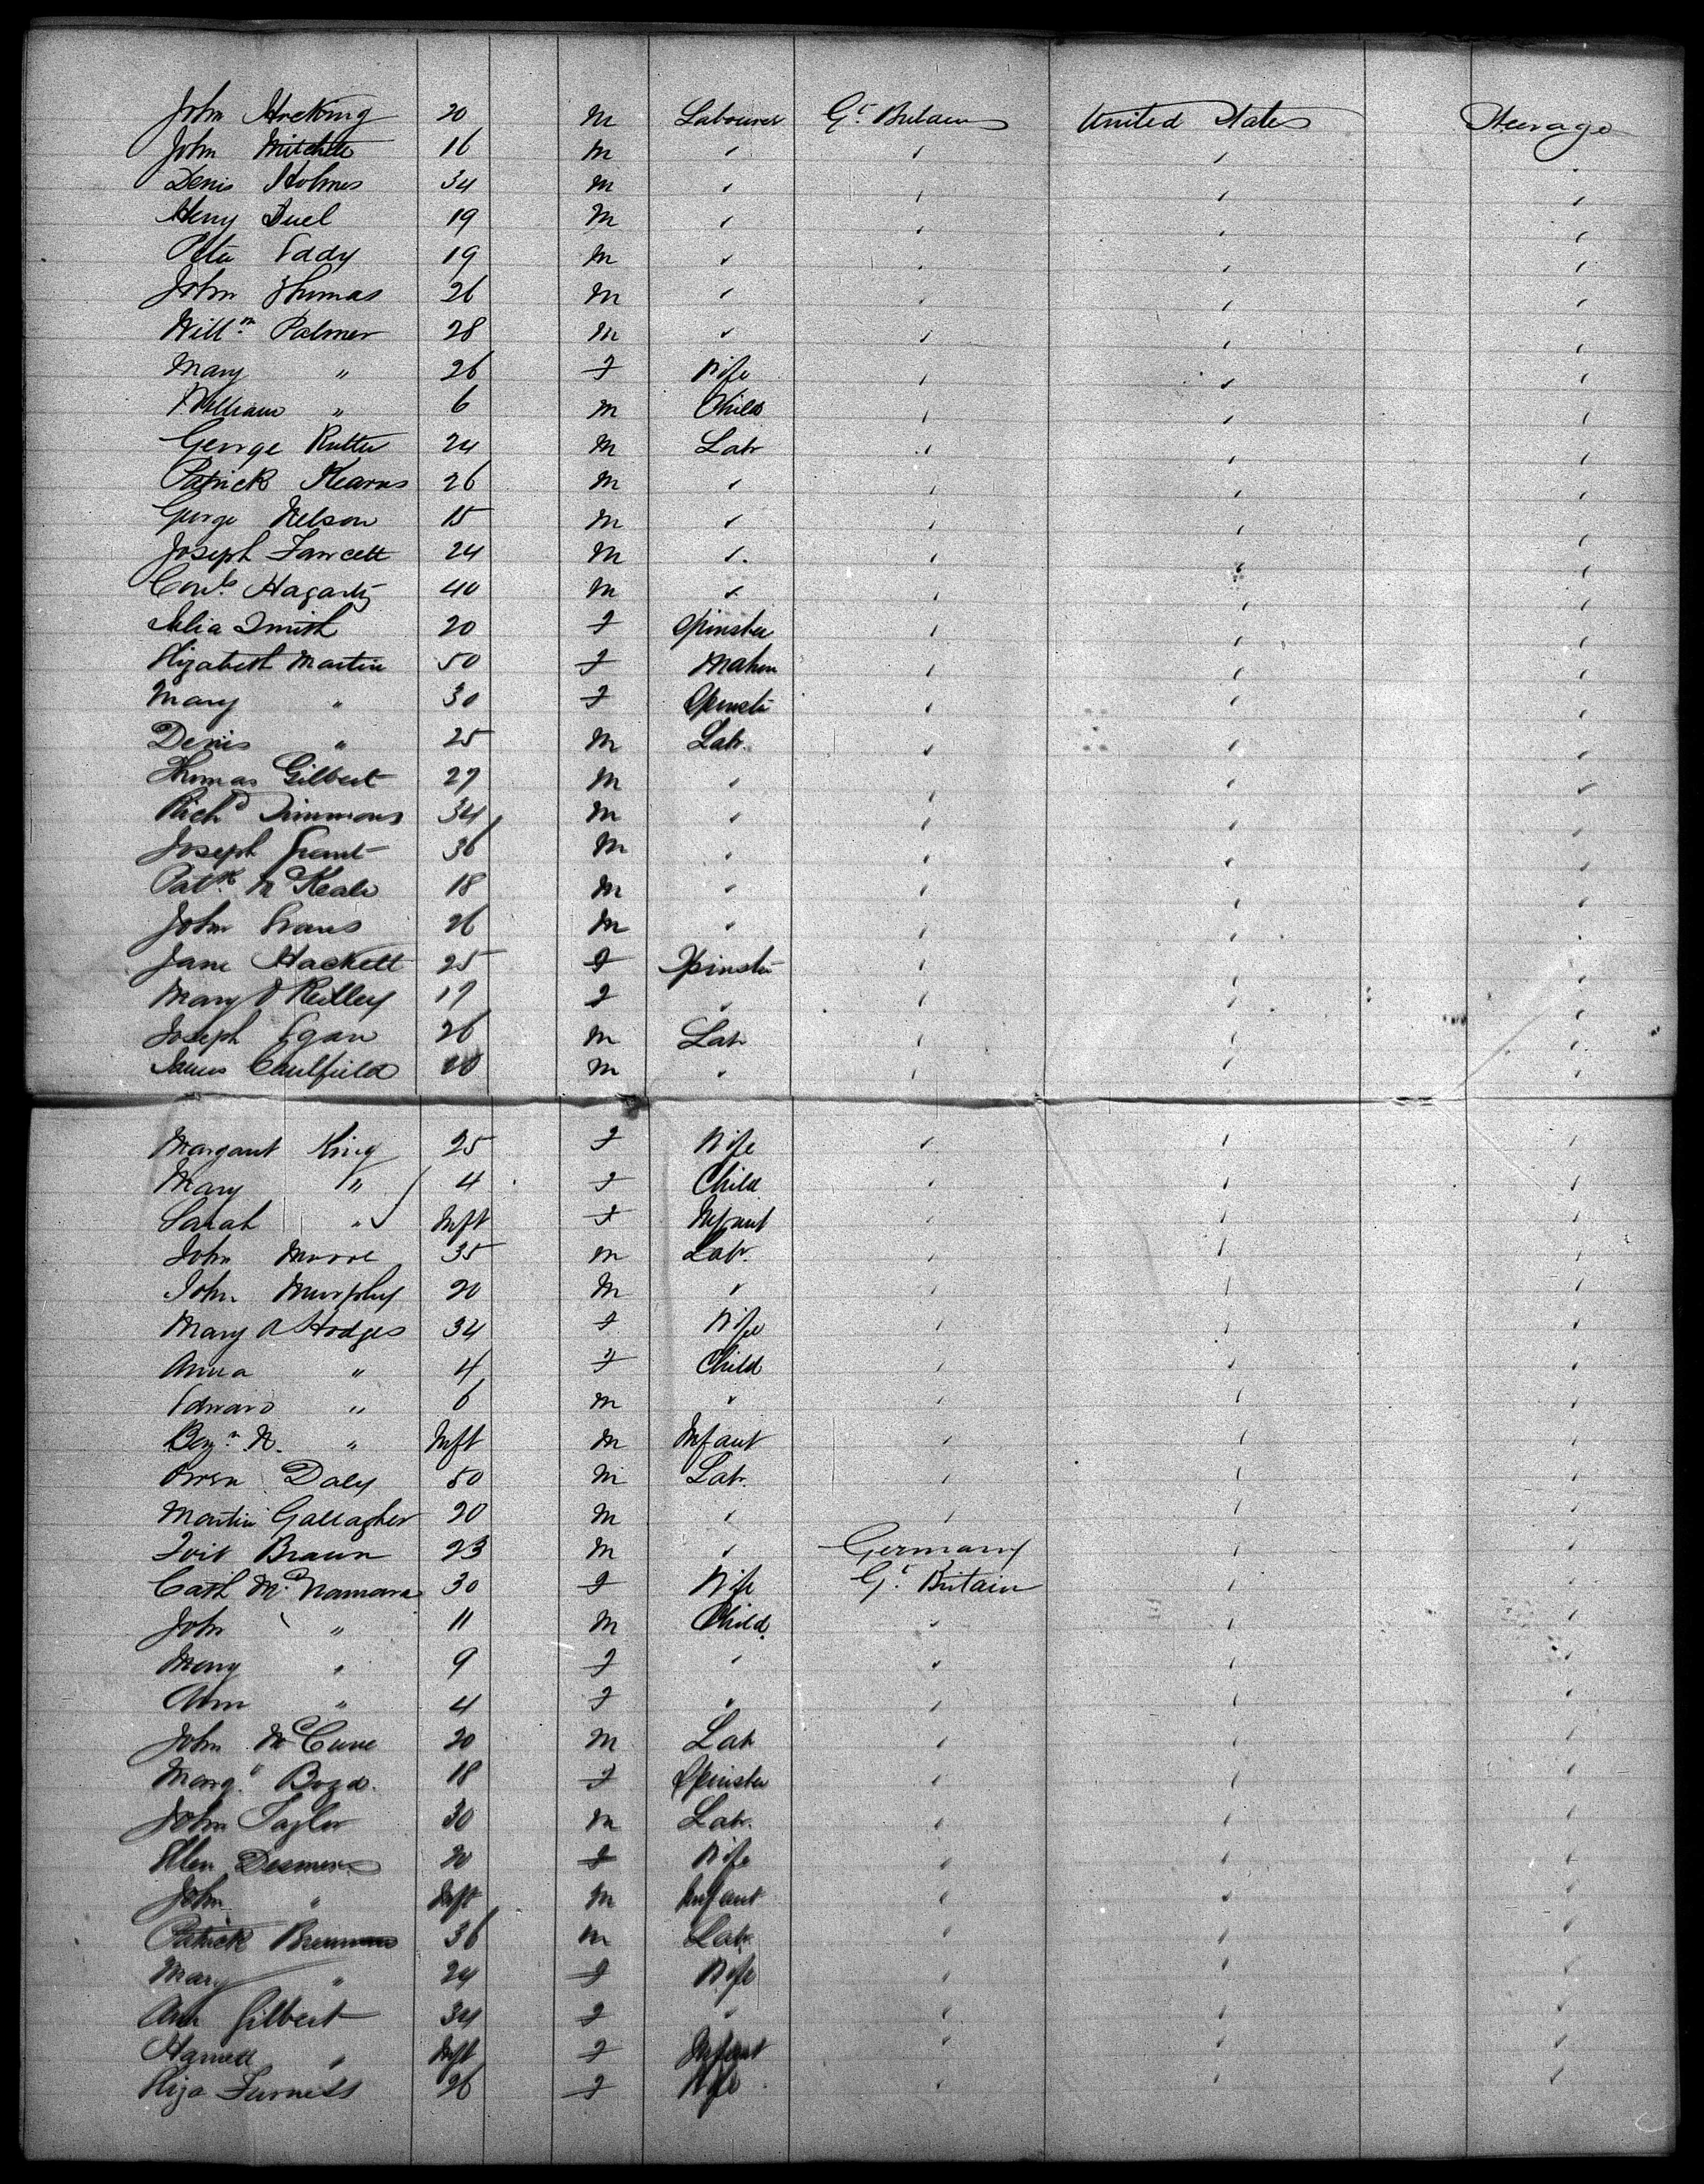 John Hocking 20 M Labourer Gt. Britain United States Steerage
John Mitchell 16 M " " " "
Denis Holmes 34 M " " " "
Henry Buel 19 M " " " "
Peter Eddy 19 M " " " "
John Thomas 26 M " " " "
Willm. Palmer 28 M " " " "
Mary " 26 F Wife " " "
William " 6 M Child " " "
George Rutter 24 M Labr " " "
Patrick Kearns 26 M " " " "
George Nelson 15 M " " " "
Joseph Fawcett 24 M " " " "
Corns. Hagarty 40 M " " " "
Julia Smith 20 F Spinster " " "
Elizabeth Martin 50 F Matron " " "
Mary " 30 F Spinstr " " "
Denis " 25 M Labr. " " "
Thomas Gilbert 27 M " " " "
Richd Simmons 34 M " " " "
Joseph Grant 36 M " " " "
Patk. McKeale 18 M " " " "
John Evans 26 M " " " "
Jane Hackett 25 F Spinster " " "
Mary O Reilley 17 F " " " "
Joseph Egan 26 M Labr " " "
James Caulfield M " " " "
Margaret King 25 F Wife " " "
Mary " 4 F Child " " "
Sarah " Inft F Infant " " "
John Moore 35 M Labr. " " "
John Murphy 20 M " " " "
Mary A Hodges 34 F Wife " " "
Anna " 4 F Child " " "
Edward " 6 M " " " "
Benjn. N. " Inft M Infant " " "
Owen Daly 50 M Labr. " " "
Martin Gallagher 20 M " " " "
Braun 23 M " Germany " "
Cath McNamara 30 F Wife Gt. Britain " "
John " 11 M Child " " "
Mary " 9 F " " " "
Ann " 4 F " " " "
John McCune 20 M Labr " " "
Margt. Boyd. 18 F Spinster " " "
John Taylor 30 M Labr. " " "
Ellen 20 F Wife " " "
John " Inft M Infant " " "
Patrick Brennan 36 M Labr. " " "
Mary " 24 F Wife " " "
Ann Gilbert 34 F " " " "
Harriett " Inft F Infant " " "
Eliza Furness 26 F Wife " " "